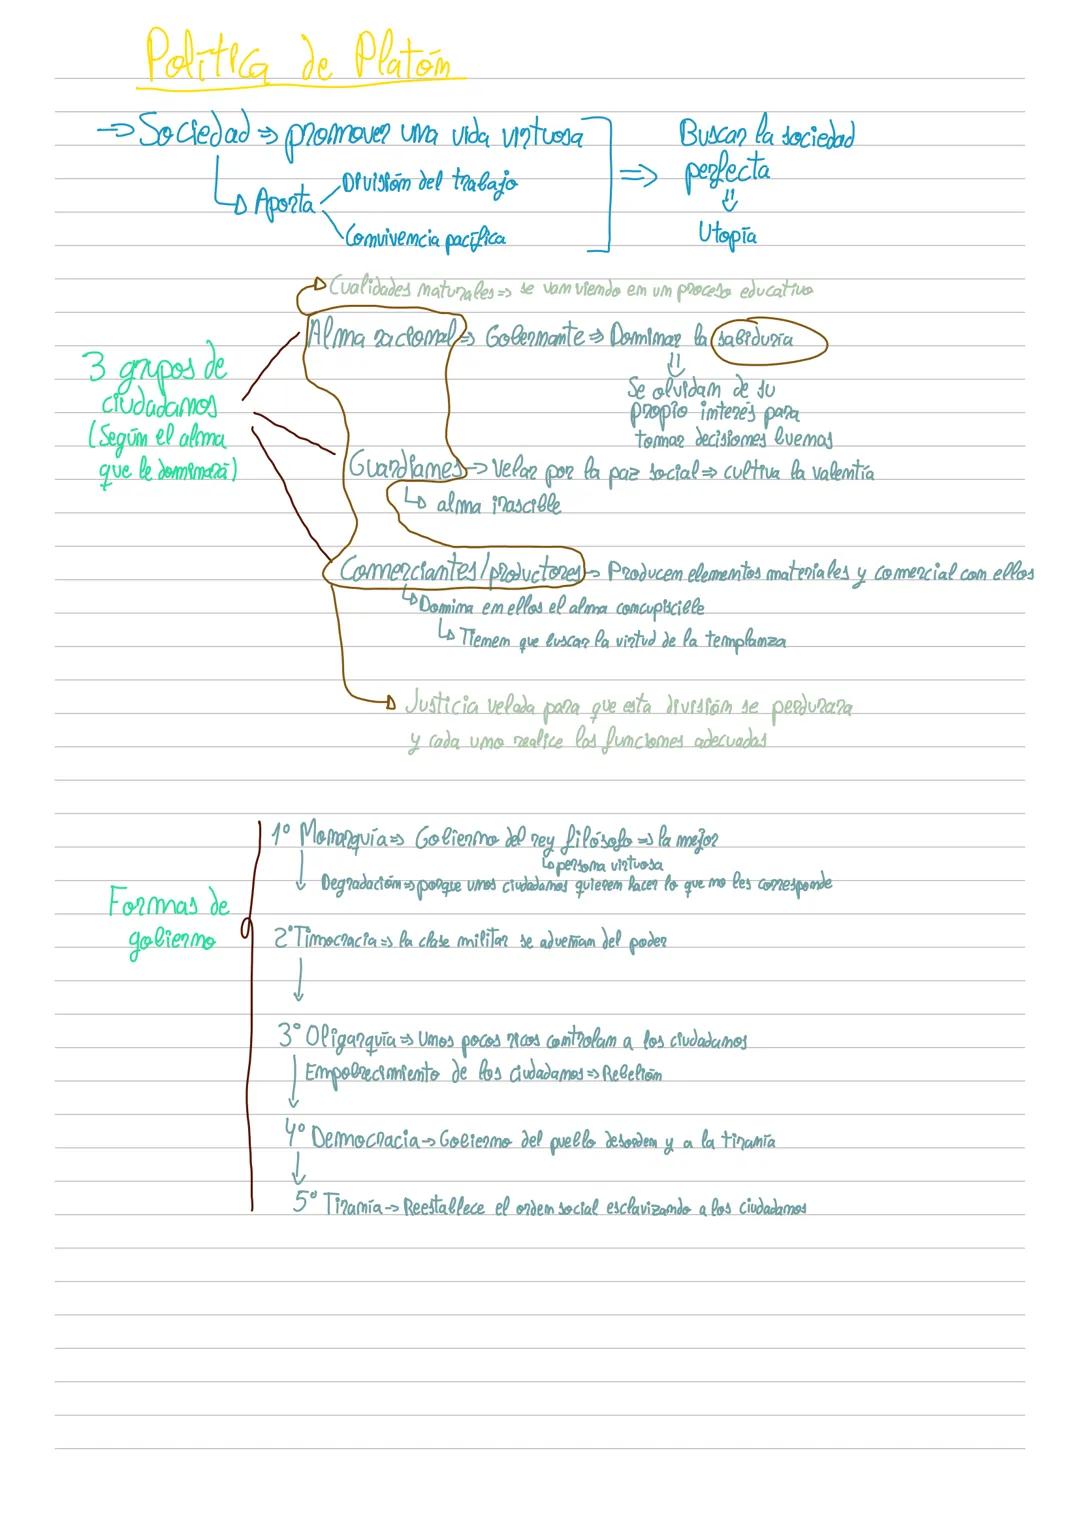 Política de Platón
⇒ Sociedad ⇒ promover una vida virtuosa ⇒ Buscar la sociedad
perfecta
⇓
Utopía
↳ Aporta
División del trabajo
Convivencia pacífica
Cualidades naturales ⇒ se van viendo en un proceso educativo
3 grupos de
ciudadanos
(Según el alma
que le dominará)
Alma racional ⇒ Gobernante ⇒ Dominar la sabiduría
⇓
Se olvidan de su
propio interés para
tomar decisiones buenas
Guardianes → Velar por la paz social ⇒ cultiva la valentía
↳ alma irascible
Comerciantes/productores → Producen elementos materiales y comercial con ellos
↳ Domina en ellos el alma concupiscible
↳ Tienen que buscar la virtud de la templanza
Justicia velada para que esta división se perdurara
y cada uno realice las funciones adecuadas
Formas de
gobierno
1º Monarquía ⇒ Gobierno del rey filósofo ⇒ la mejor
↳ persona virtuosa
↓ Degradación ⇒ porque unos ciudadanos quieren hacer lo que no les corresponde
2º Timocracia ⇒ la clase militar se adueñan del poder
↓
3º Oligarquía ⇒ Unos pocos ricos controlan a los ciudadanos
↓ Empobrecimiento de los ciudadanos ⇒ Rebelión
4º Democracia → Gobierno del pueblo desorden y a la tiranía
↓
5º Tiranía → Reestablece el orden social esclavizando a los ciudadanos